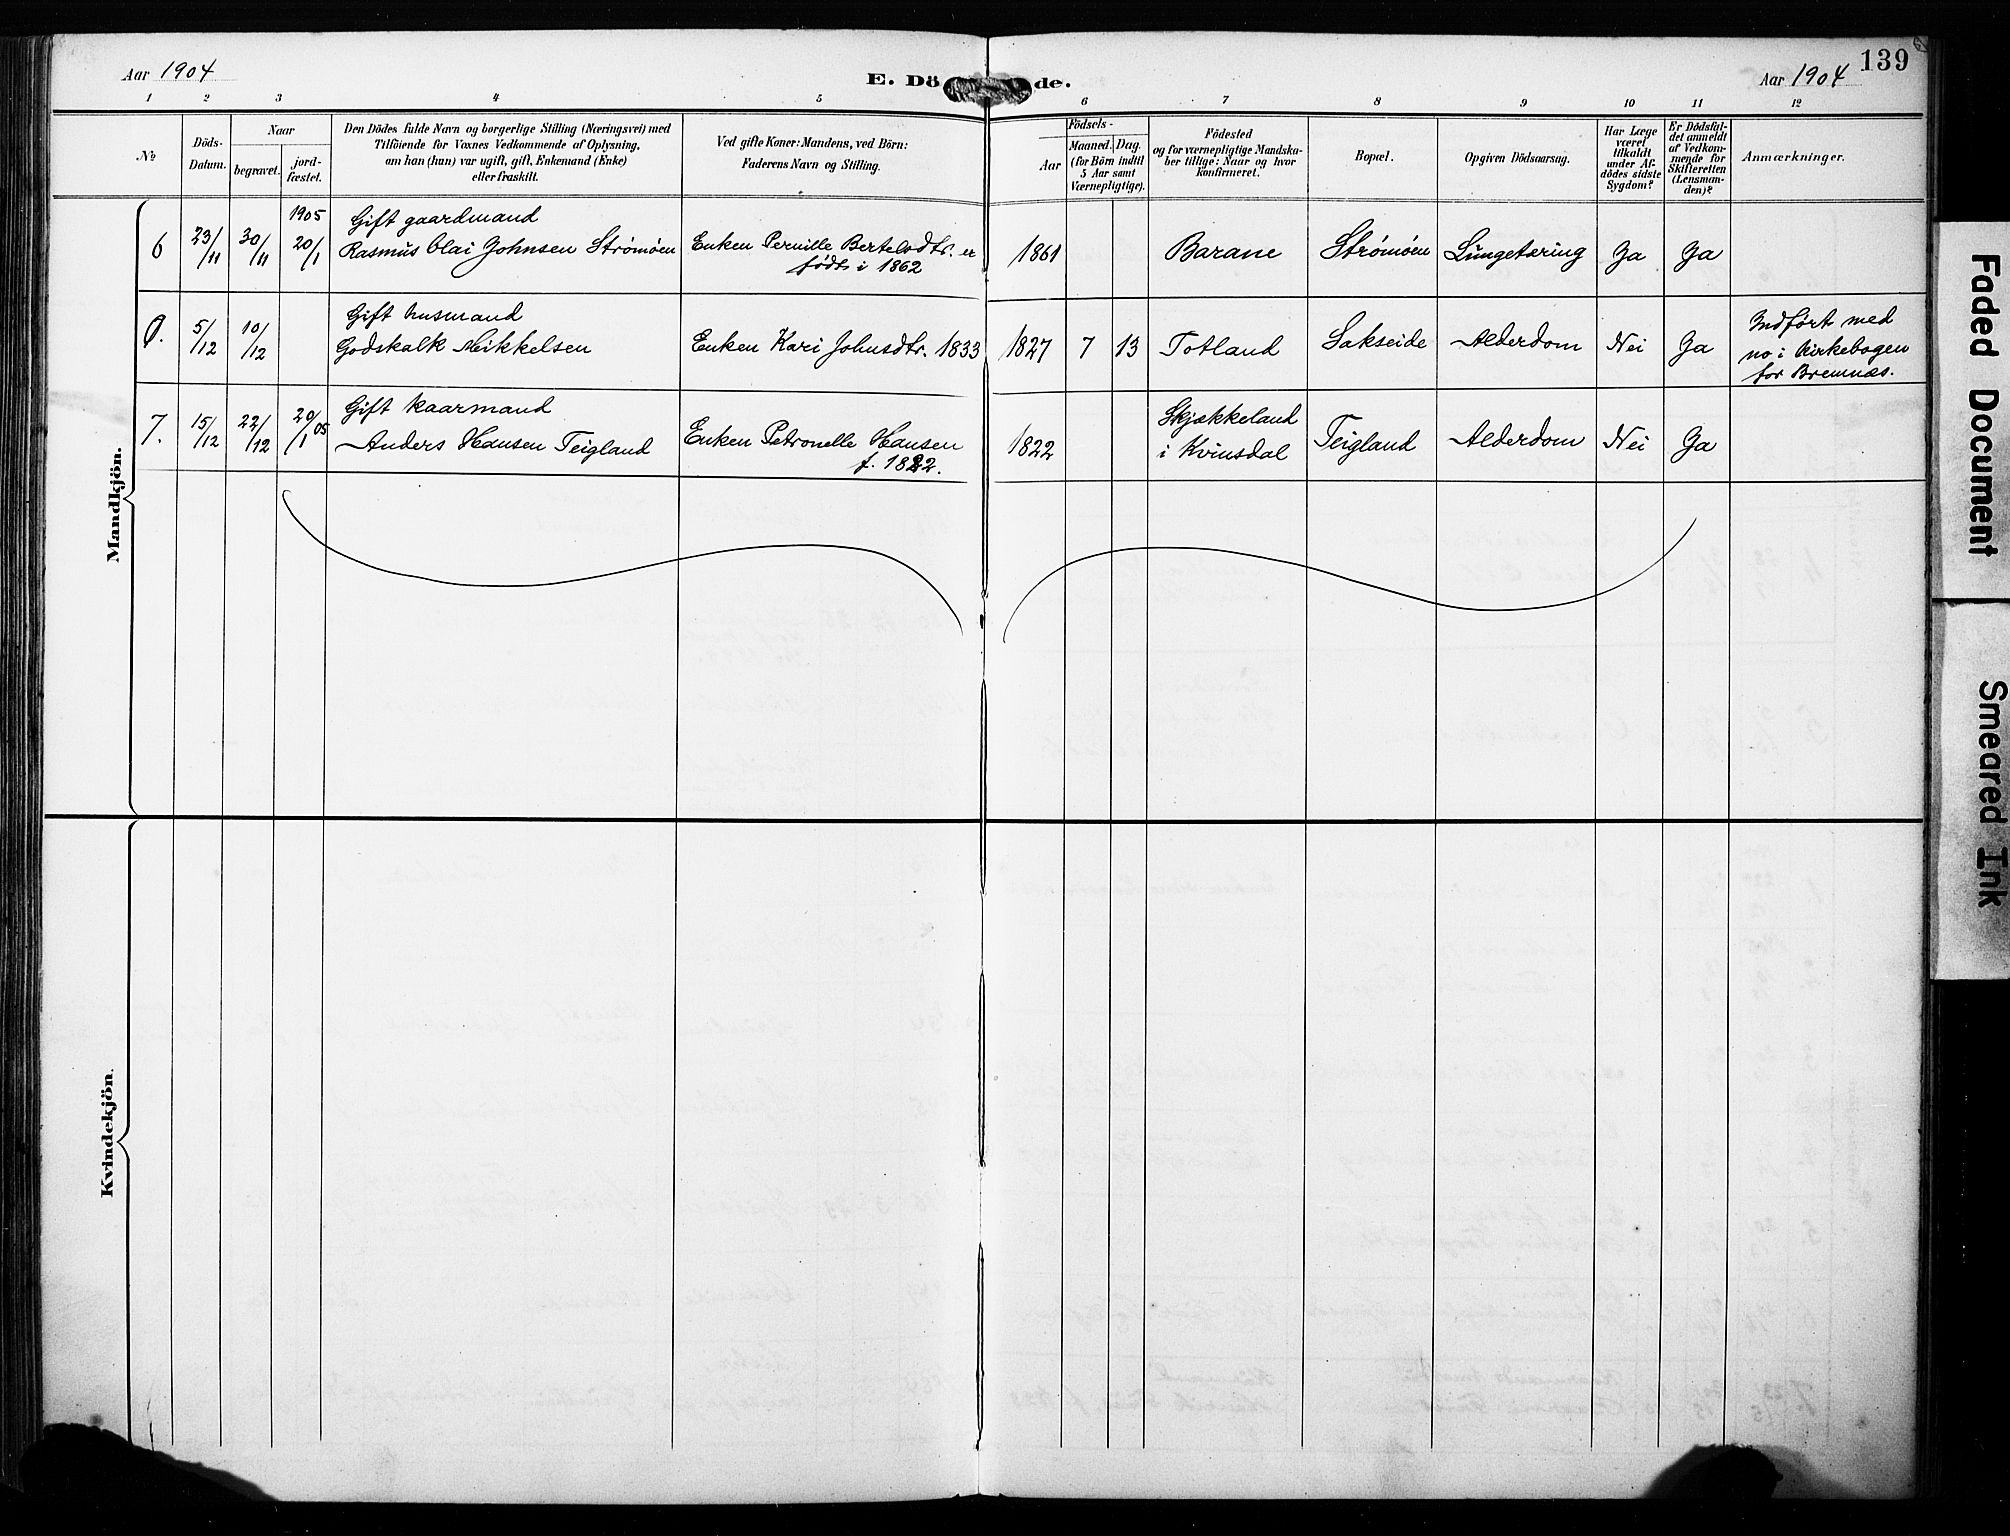 Aar 1904
E. Dö de.
Aar 1904
139
1 2 3 4 5 6 7 8 9 10 11 12
№
Döds-
Datum.
Naar
begravet.
jord-
fæstet.
Den Dödes fulde Navn og borgerlige Stilling (Næringsvei) med
Tilföiende for Voxnes Vedkommende af Oplysning,
om han (hun) var ugift, gift, Enkemand (Enke)
eller fraskilt.
Ved gifte Koner: Mandens, ved Börn:
Faderens Navn og Stilling.
Födsels-
Aar
Maaned.
Dag.
(for Börn indtil
5 Aar samt
Værnepligtige).
Födested
og for værnepligtige Mandska-
ber tillige: Naar og hvor
konfirmeret.
Bopæl.
Opgiven Dödsaarsag.
Har Læge
været
tilkaldt
under Af-
dödes sidste
Sygdom?
Er Dödsfal-
det anmeldt
af Vedkom-
mende for
Skifteretten
(Lensman-
den)?
Anmærkninger.
Mandkjön.
6 23/11 30/11 1905 20/1
Gift gaardmand
Rasmus Olai Johnsen Strømøen
Enken Pernille Bertelsdtr. er
født i 1862
1861 Barane Strømøen Lungetæring Ja Ja
0. 5/12 10/12
Gift husmand
Godskalk Mikkelsen
Enken Kari Johnsdtr. 1833
1827 7 13 Totland Sakseide Alderdom Nei Ja
Indført med
no i kirkebogen
for Bremnæs.
7. 15/12 22/12 20/1 05
Gift kaarmand
Anders Hansen Teigland
Enken Petronelle Hansen
f. 1822.
1822
Skjækkeland
i Kvinsdal
Teigland Alderdom Nei Ja
Kvindekjön.
Faded Document
Smeared Ink